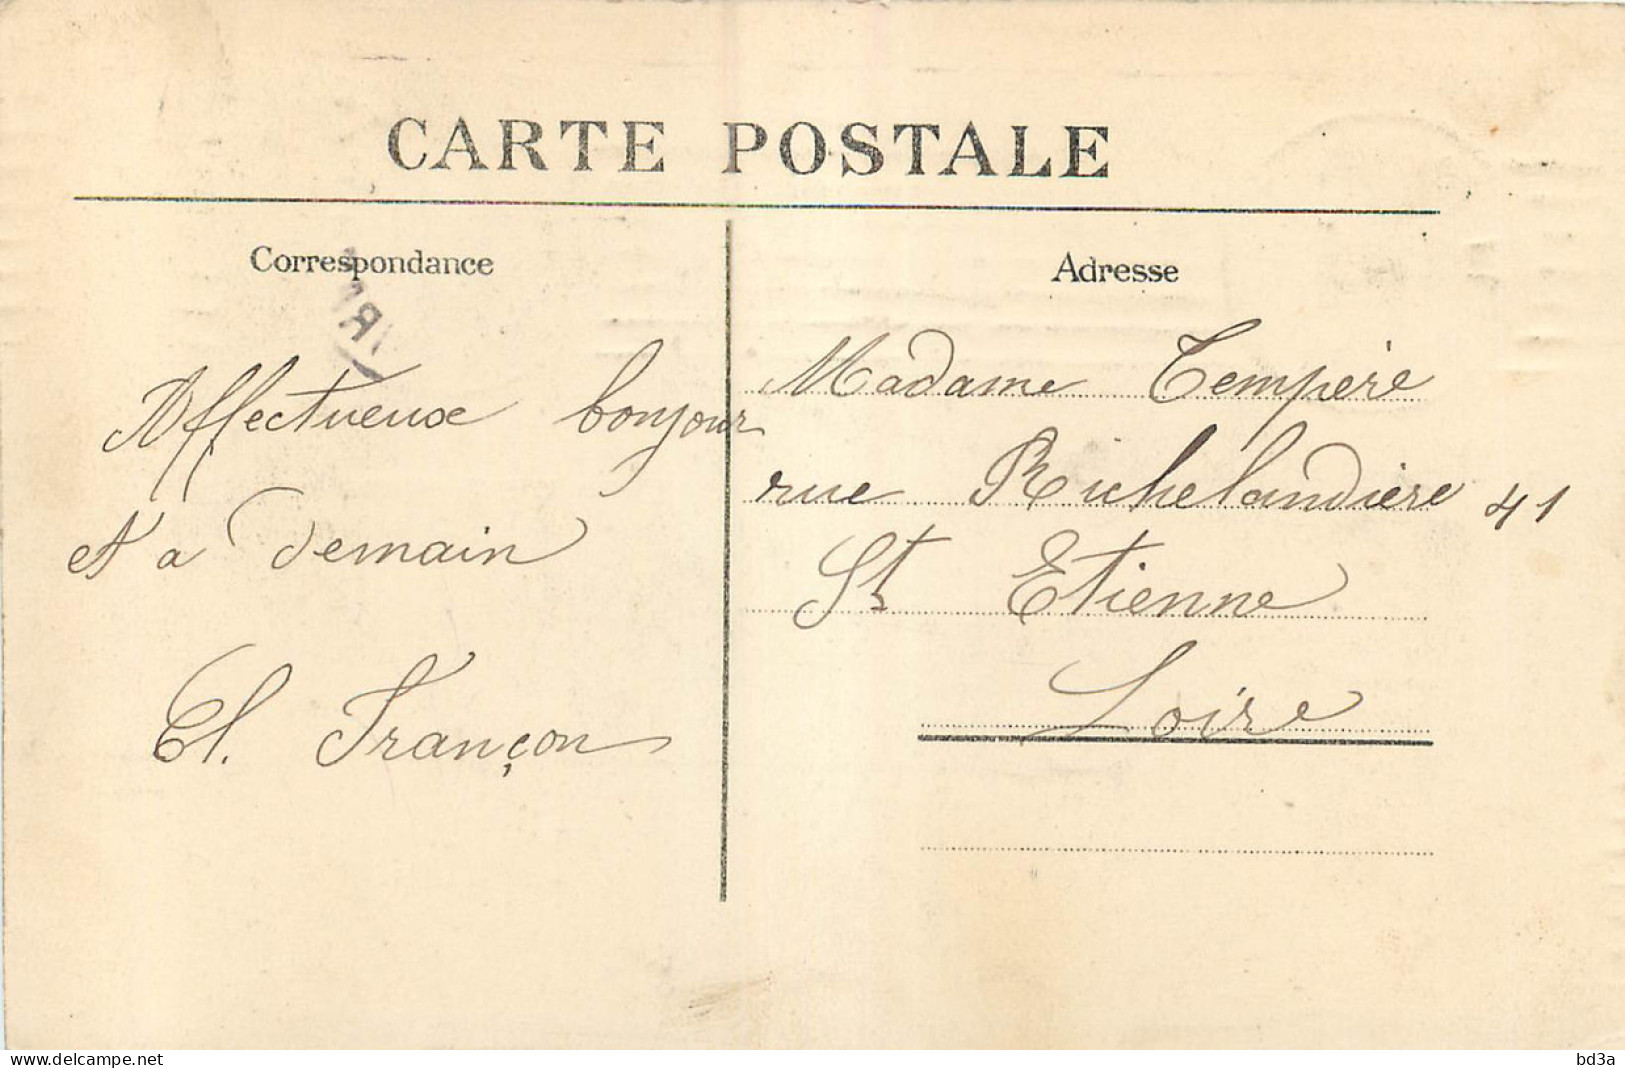 CARTE POSTALE
Correspondance
Affectueux bonjour
et a demain
Cl. Françon
Adresse
Madame Tempère
rue Richelandière 41
St Etienne
Loire
website-www.delcampe.net
bd3a